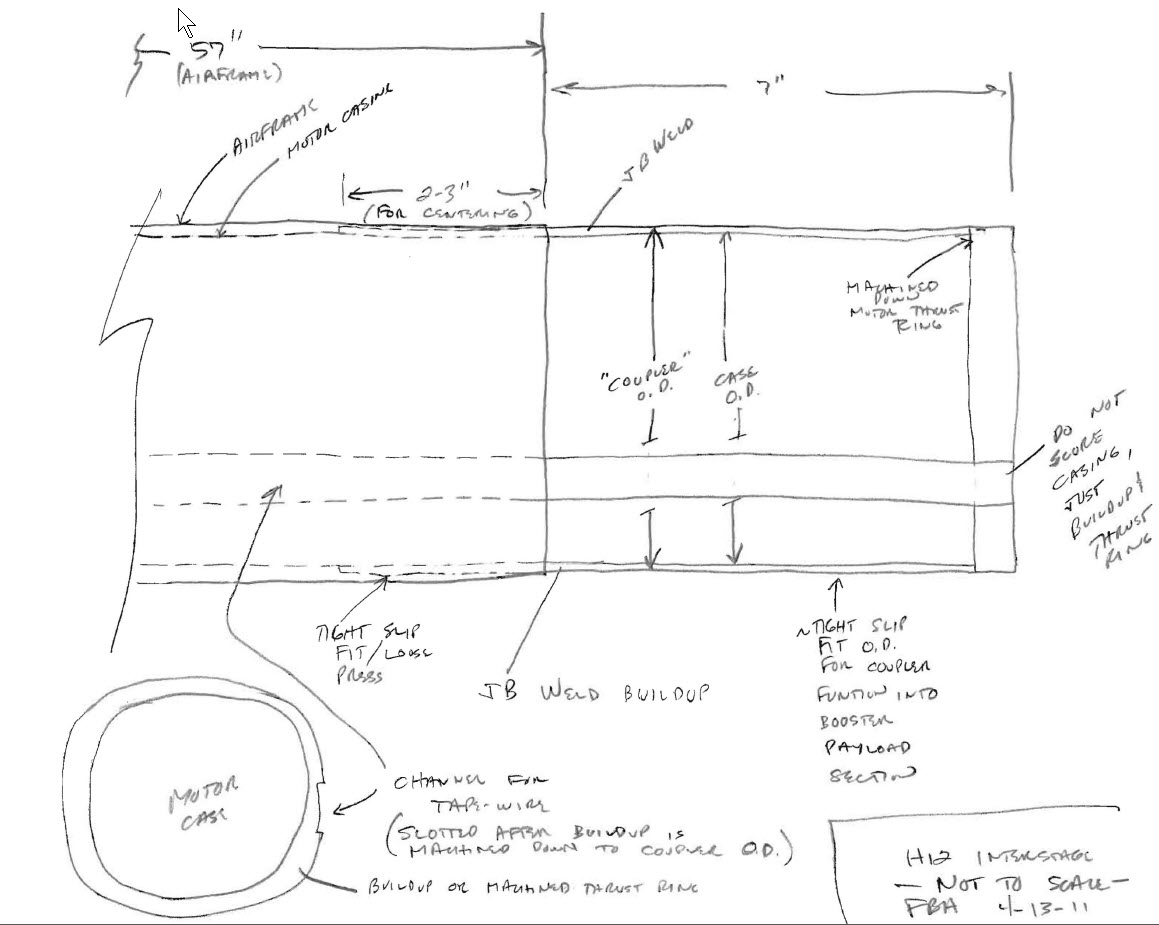 57"
(AIRFRAME)
7"
AIRFRAME
MOTOR CASING
JB WELD
2-3"
(FOR CENTERING)
MACHINED
DOWN
MOTOR THRUST
RING
"COUPLER"
O.D.
CASE
O.D.
DO NOT
SCORE
CASING,
JUST
BUILDUP &
THRUST
RING
TIGHT SLIP
FIT/LOOSE
PRESS
JB WELD BUILDUP
~TIGHT SLIP
FIT O.D.
FOR COUPLER
FUNTION INTO
BOOSTER
PAYLOAD
SECTION
MOTOR
CASE
CHANNEL FOR
TAPE-WIRE
(SLOTTED AFTER BUILDUP IS
MACHINED DOWN TO COUPLER O.D.)
BUILDUP OR MACHINED THRUST RING
H12 INTERSTAGE
— NOT TO SCALE —
FBA 4-13-11